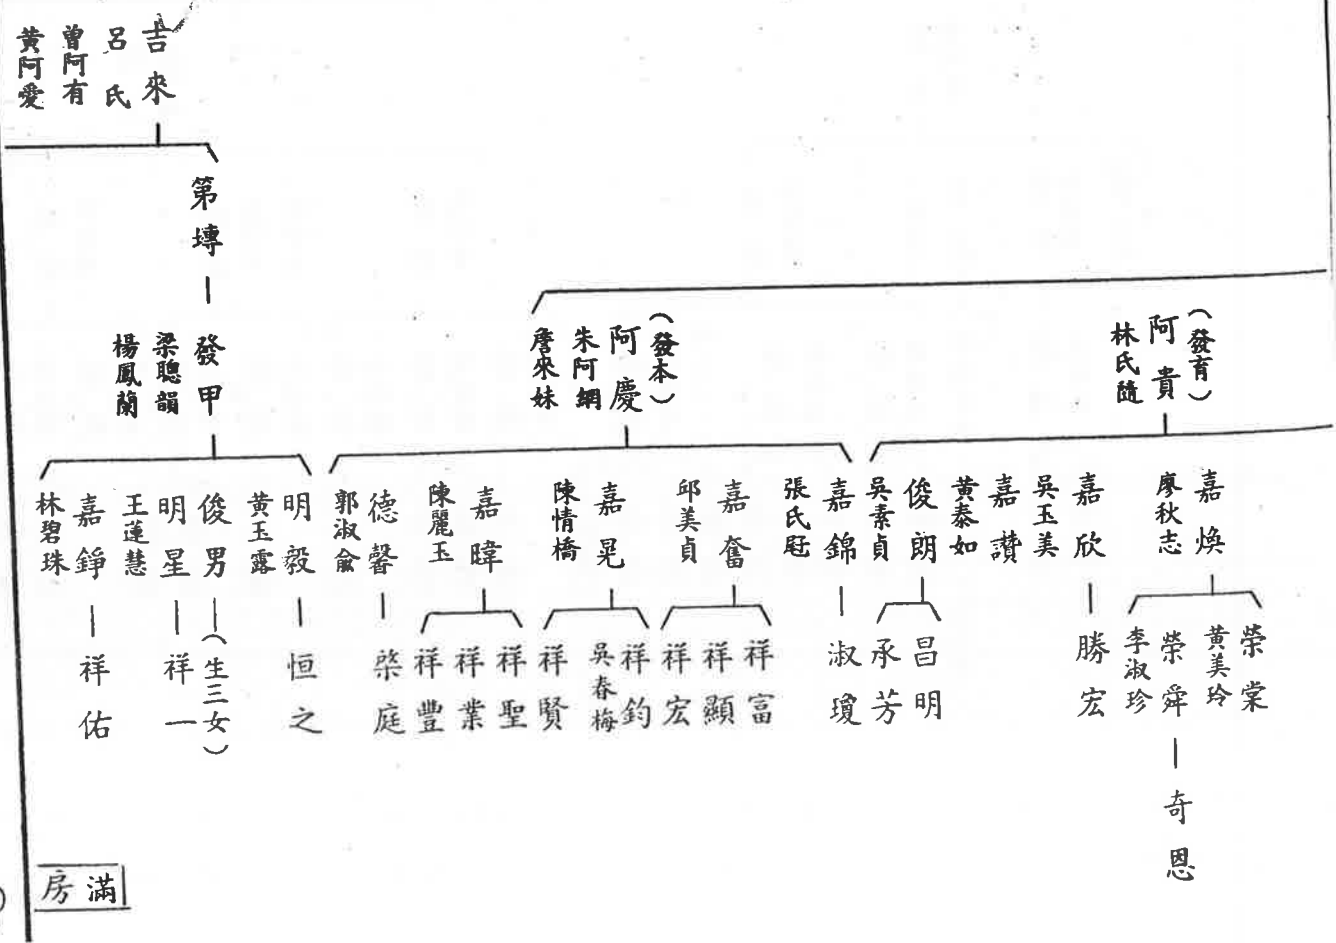 吉來
呂氏
曾阿有
黃阿愛
第塼
發甲
梁聰韻
楊鳳蘭
(發育)
阿貴
林氏隨
(發本)
阿慶
朱阿網
詹來妹
嘉煥
廖秋志
嘉欣
吳玉美
嘉讚
黃泰如
俊朗
吳素貞
嘉錦
張氏
嘉奮
邱美貞
嘉晃
陳情橋
嘉暐
陳麗玉
德馨
郭淑兪
明毅
黃玉露
俊男
明星
王蓮慧
嘉錚
林碧珠
榮棠
黃美玲
榮舜
李淑珍
勝宏
昌明
承芳
淑瓊
祥富
祥顯
祥宏
祥鈞
吳春梅
祥賢
祥聖
祥業
祥豐
棨庭
恒之
(生三女)
祥一
祥佑
奇恩
滿房